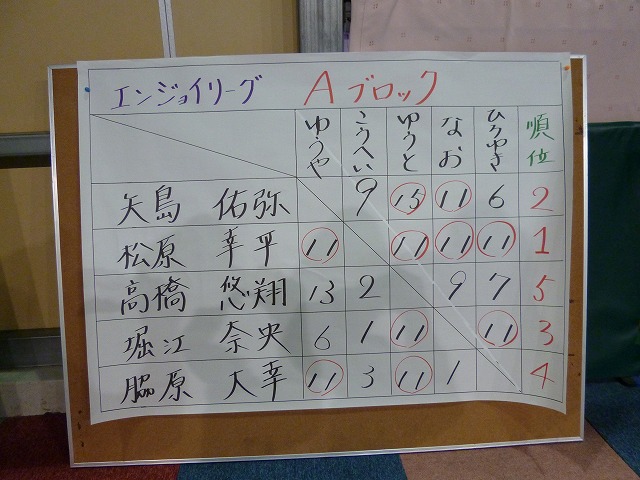 エンジョイリーグ Aブロック
ゆうや こうへい ゆうと なお ひろゆき 順位
矢島 佑弥 9 15 11 6 2
松原 幸平 11 11 11 11 1
高橋 悠翔 13 2 9 7 5
堀江 奈央 6 1 11 11 3
脇原 大幸 11 3 11 1 4